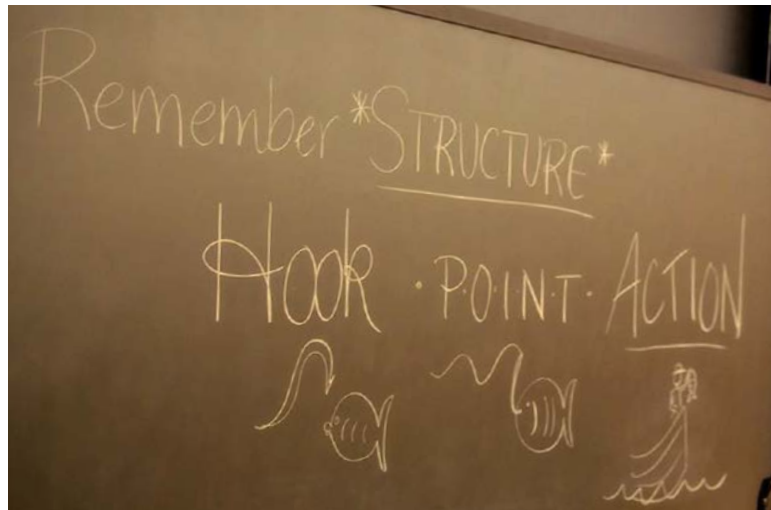 Remember *STRUCTURE*
HOOK • P•O•I•N•T • ACTION